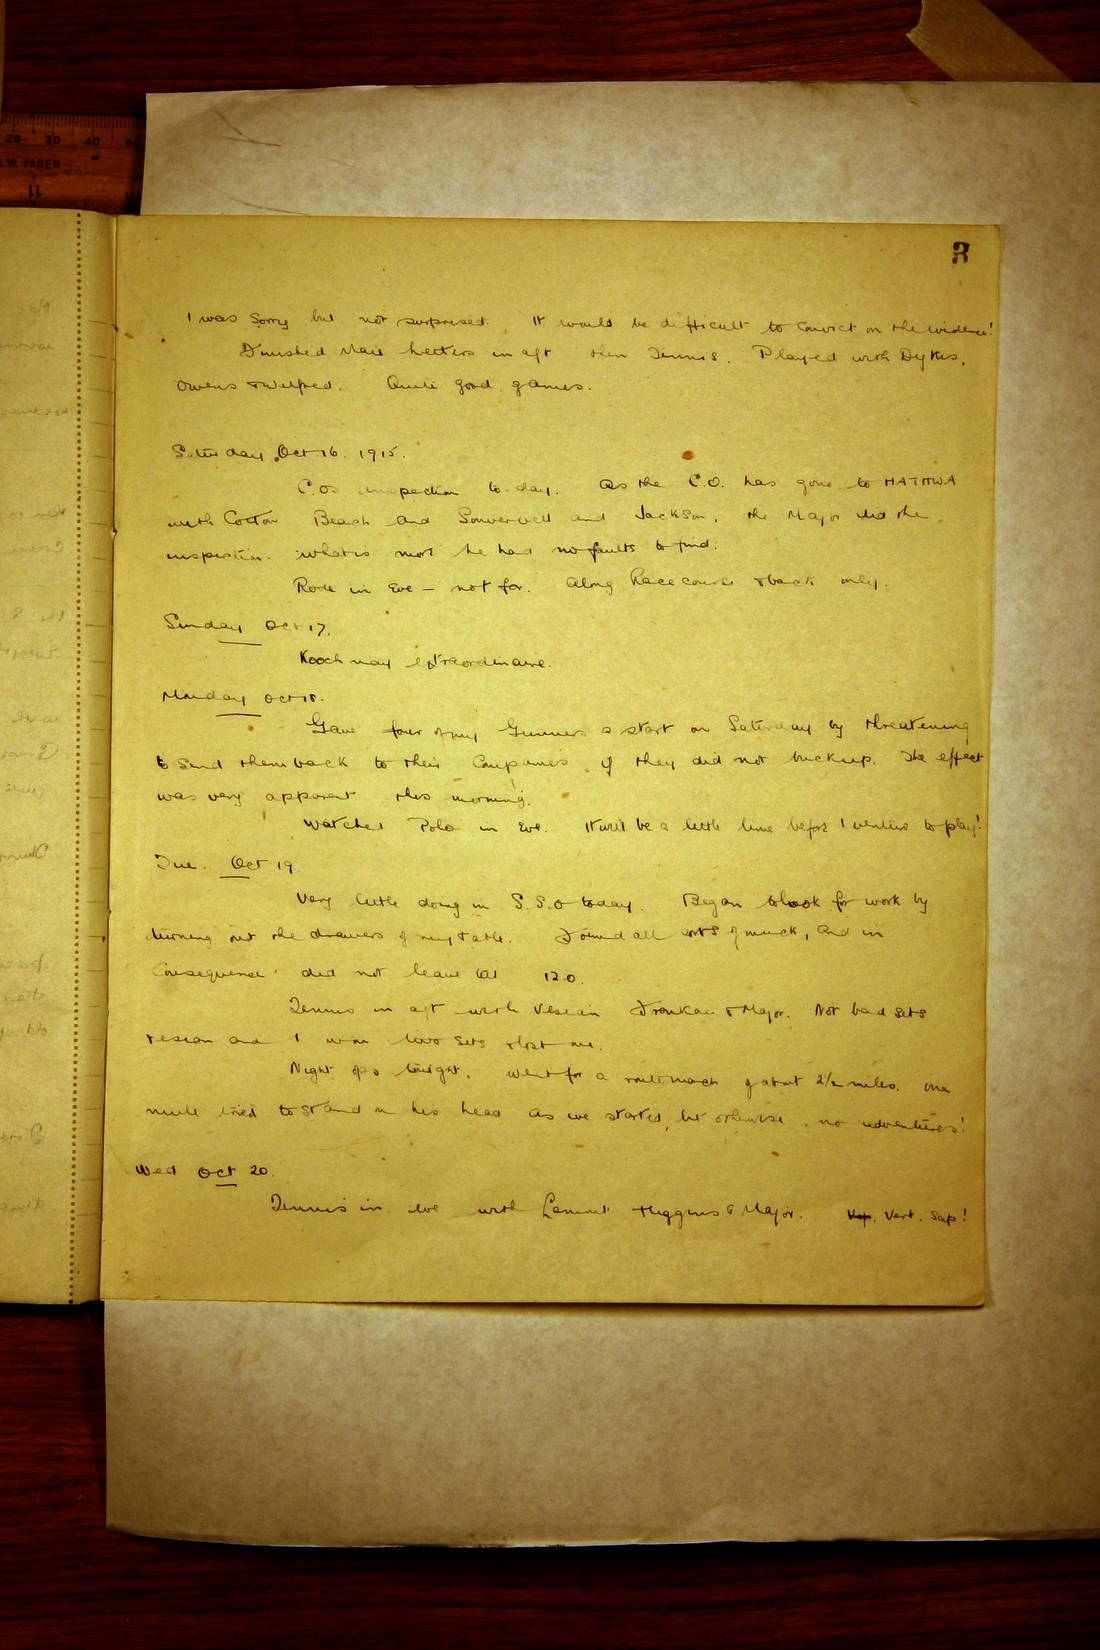 3
I was sorry but not surprised. It would be difficult to convict on the evidence!
Finished Mail Letters in aft then Tennis. Played with Dykes,
Owens & Wilfred. Quite good games.
Saturday Oct 16. 1915.
C.Os inspection to-day. As the C.O. has gone to HATHWA
with Cotton Beach and Somervell and Jackson, the Major did the
inspection. What is more he had no faults to find.
Rode in Eve - not far. Along Racecourse & back only.
Sunday Oct 17.
Kooch nay extraordinaire.
Monday Oct 18.
Gave four of my Gunners a start on Saturday by threatening
to send them back to their Companies if they did not buck up. The effect
was very apparent this morning.
Watched Polo in Eve. It will be a little time before I venture to play!
Tue. Oct 19.
Very little doing in S.S.O today. Began to look for work by
turning out the drawers of my table. Found all sorts of muck, and in
consequence did not leave till 12.0.
Tennis in aft with Vesian Fronkau & Major. Not bad sets
Vesian and I won two sets & lost one.
Night ops tonight. Went for a route march of about 2½ miles. One
mule tried to stand on his head as we started, but otherwise no adventures!
Wed Oct 20.
Tennis in eve with Lamont Higgins & Major. Vert. Sap!
20 30 40 50
W. FABER
11